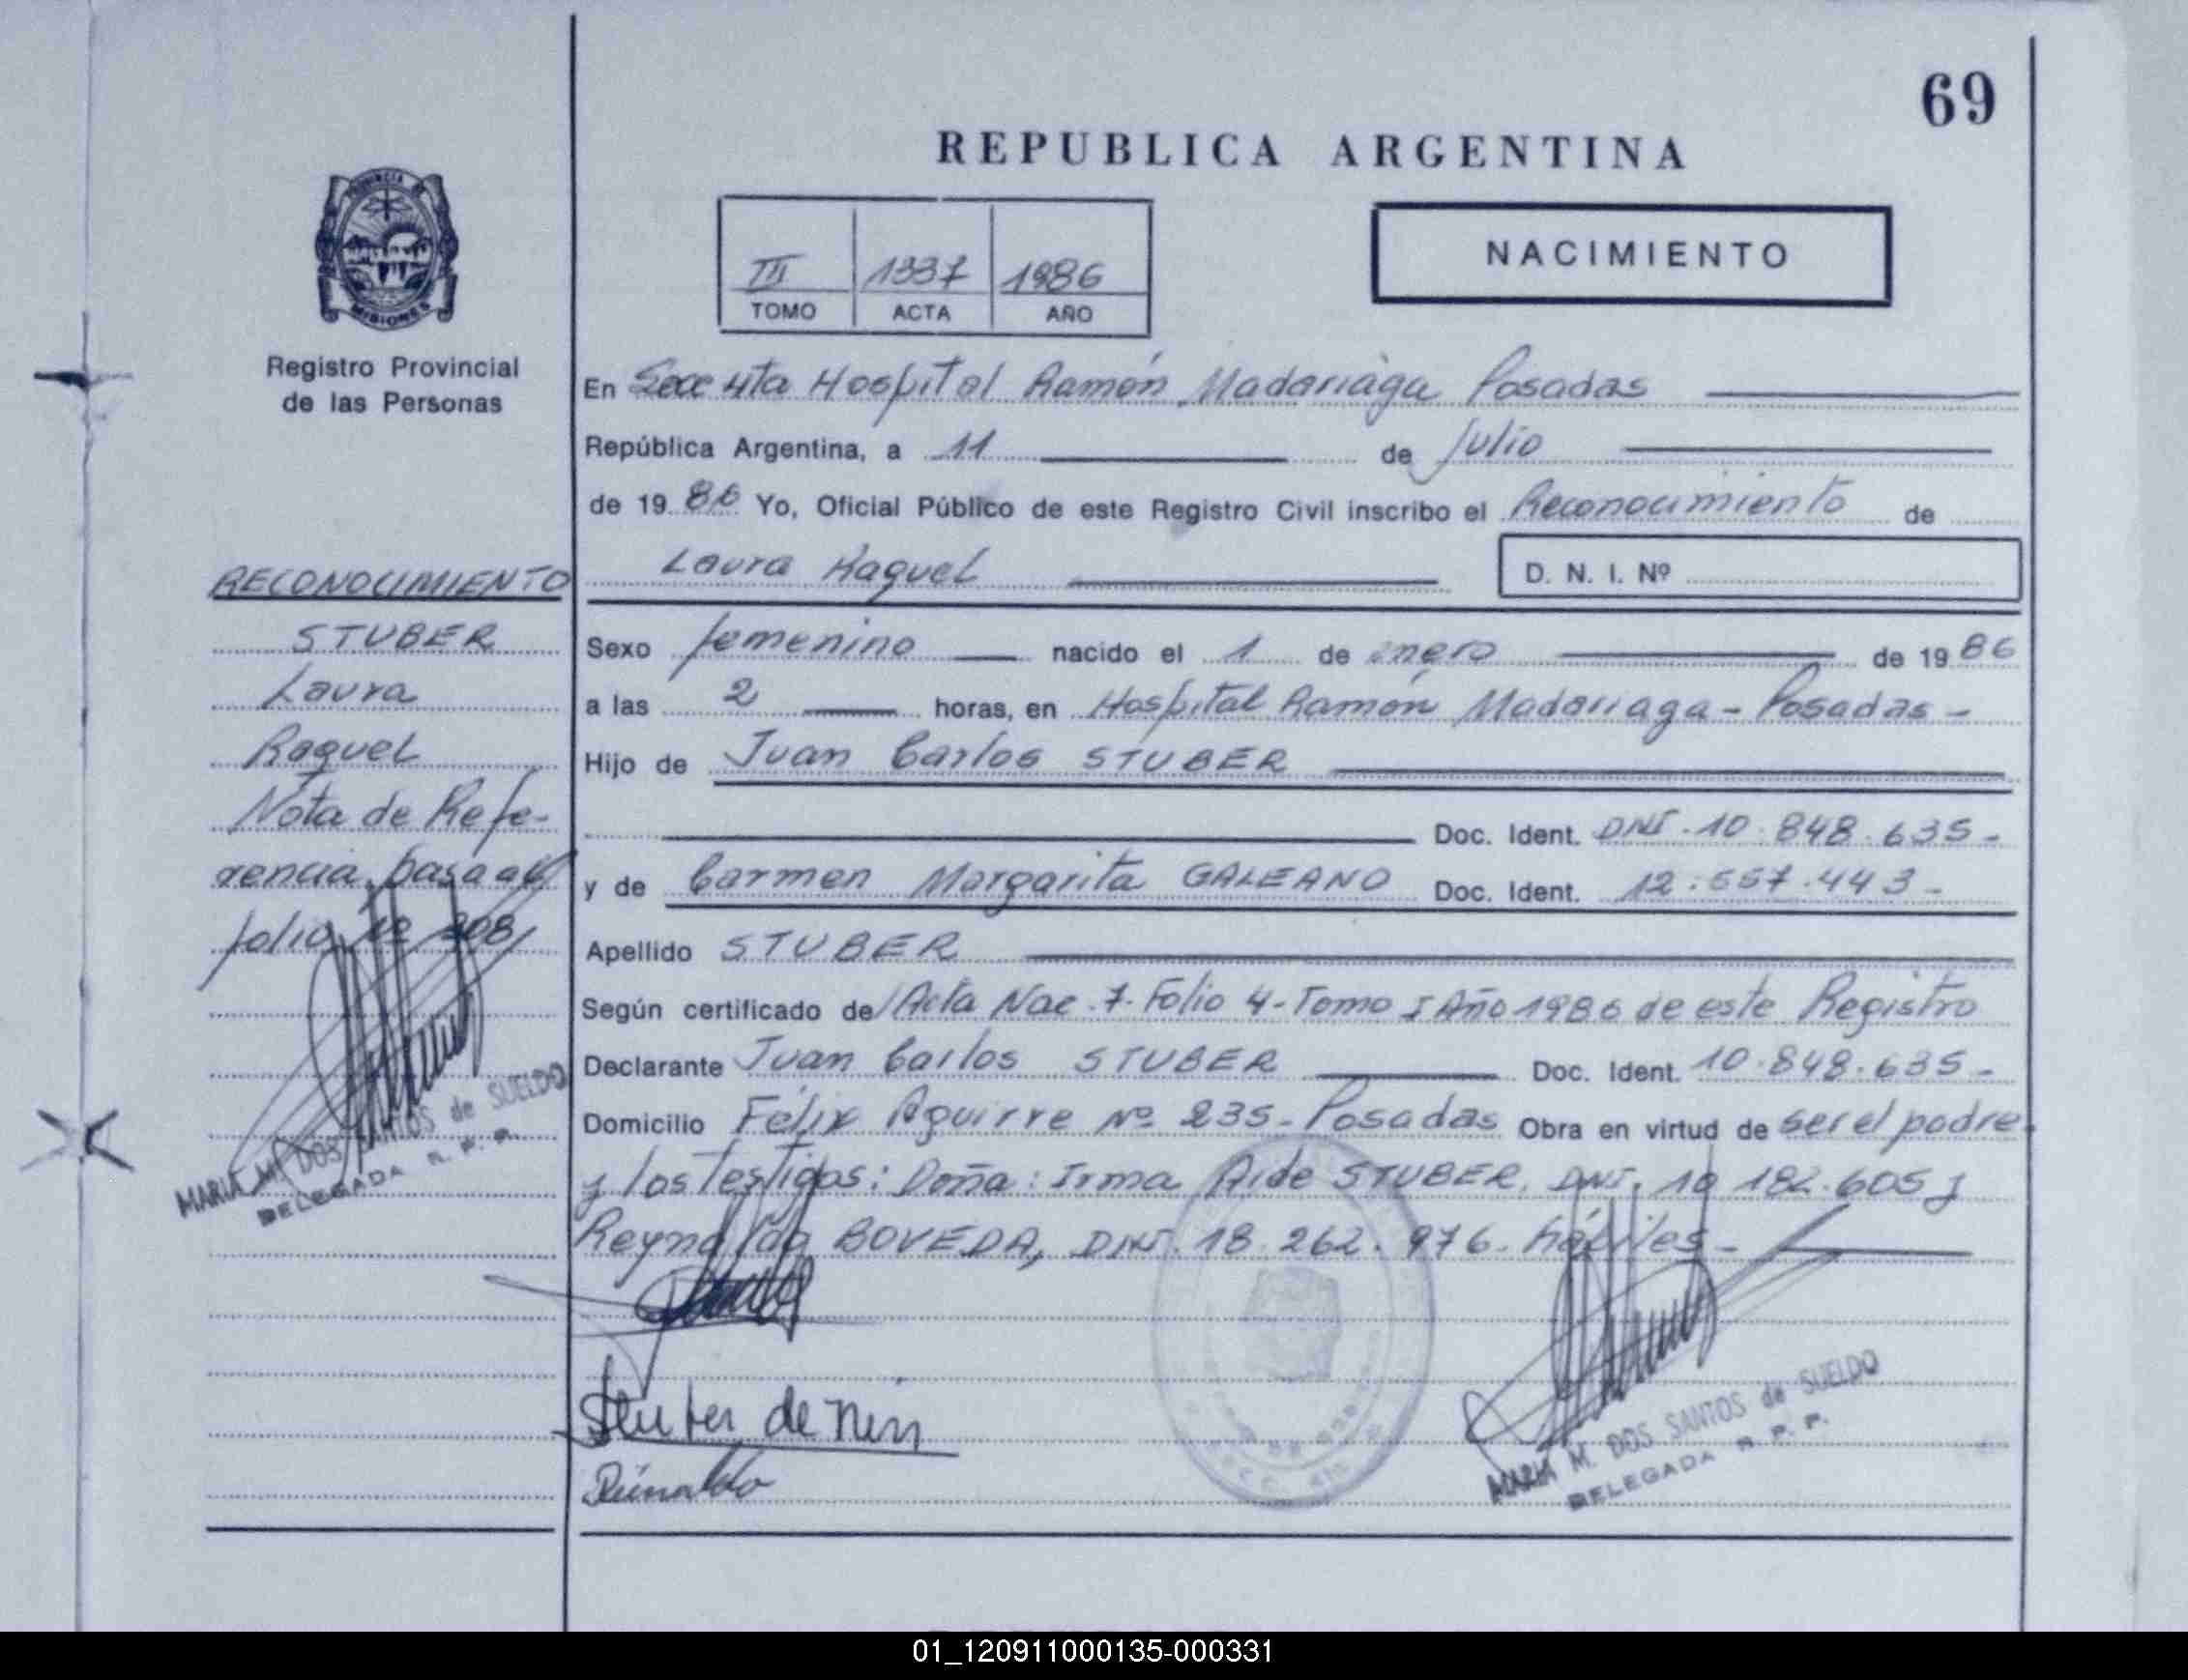 69
REPUBLICA ARGENTINA
III 1337 1986
TOMO ACTA AÑO
NACIMIENTO
PROVINCIA DE
MISIONES
Registro Provincial
de las Personas
En Secc 4ta Hospital Ramón Madariaga Posadas
República Argentina, a 11 de Julio
de 19 86 Yo, Oficial Público de este Registro Civil inscribo el Reconocimiento de
Laura Raquel D. N. I. Nº
Sexo femenino nacido el 1 de enero de 19 86
a las 2 horas, en Hospital Ramón Madariaga - Posadas -
Hijo de Juan Carlos STUBER
Doc. Ident. DNI. 10.848.635-
y de Carmen Margarita GALEANO Doc. Ident. 12.557.443-
Apellido STUBER
Según certificado de Acta Nac. 7. Folio 4 - Tomo I Año 1986 de este Registro
Declarante Juan Carlos STUBER Doc. Ident. 10.848.635-
Domicilio Félix Aguirre Nº 235 - Posadas Obra en virtud de ser el padre
y los testigos: Doña: Irma Aide STUBER, DNI. 10 182.605 y
BOVEDA, DNI. 18.262.976. hábiles -
RECONOCIMIENTO
STUBER
Laura
Raquel
Nota de Refe-
rencia pasa al
folio Nº 208
MARIA M. DOS SANTOS de SUELDO
DELEGADA R. P. P.
Stuber de
MARIA M. DOS SANTOS de SUELDO
DELEGADA R. P. P.
01_120911000135-000331